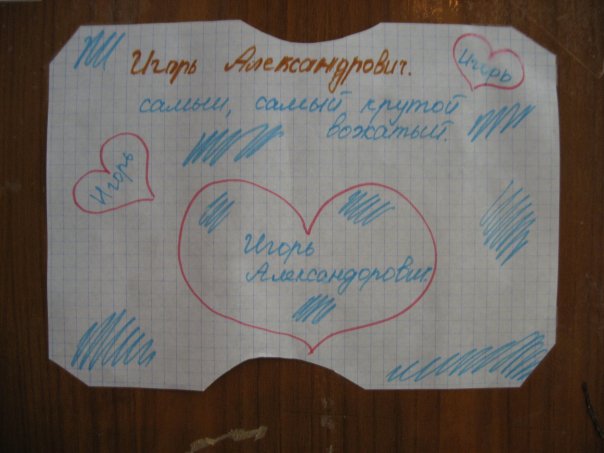 Игорь Александрович.
Игорь
самый, самый крутой
вожатый.
Игорь
Игорь
Александорович.